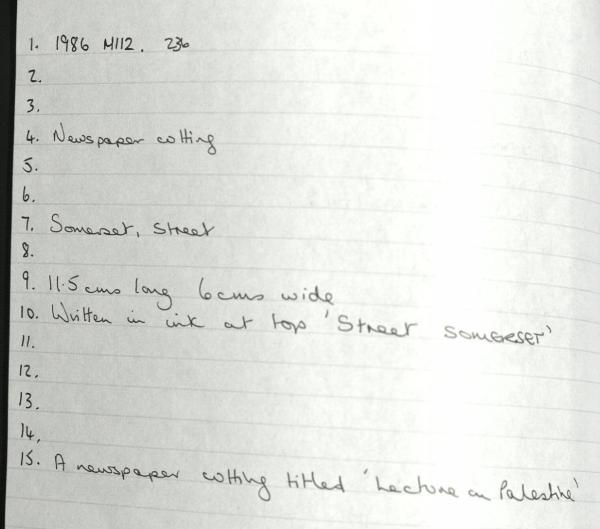 1. 1986 M112. 236
2.
3.
4. Newspaper cutting
5.
6.
7. Somerset, Street
8.
9. 11.5 cms long 6cms wide
10. Written in ink at top 'Street Somerset'
11.
12.
13.
14.
15. A newspaper cutting titled 'Lecture on Palestine'